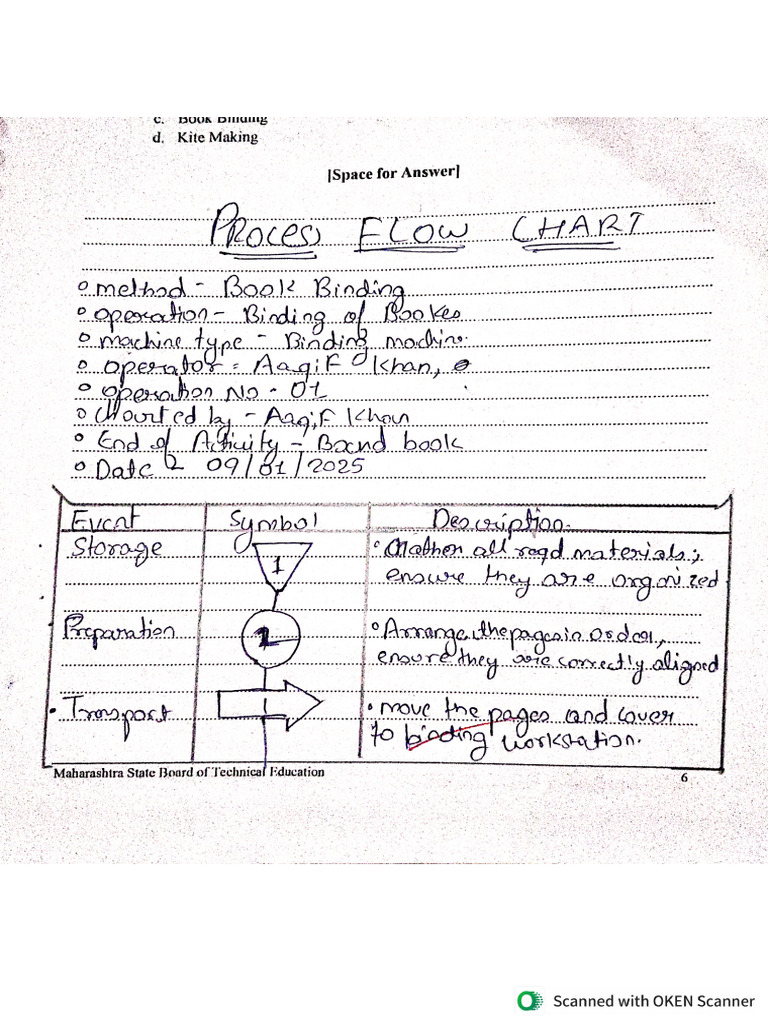 c. Book Binding
d. Kite Making
[Space for Answer]
PROCESS FLOW CHART
method - Book Binding
operation - Binding of Bookes
machine type - Binding machine
operator = Aaqif Khan,
operation No - 01
Charted by - Aaqif Khan
End of Activity - Bound book
Date = 09/01/2025
Event Symbol Description
Storage 1 Gather all reqd materials;
ensure they are organized
Preparation 2 Arrange the pages in order,
ensure they are correctly aligned
Transport move the pages and cover
to binding workstation.
Maharashtra State Board of Technical Education 6
Scanned with OKEN Scanner